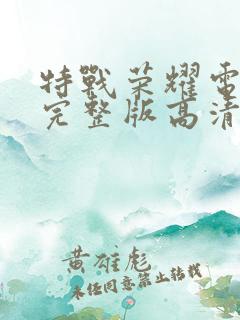 特戰荣耀電
完整版高清
黄雄彪
未经同意禁止转载